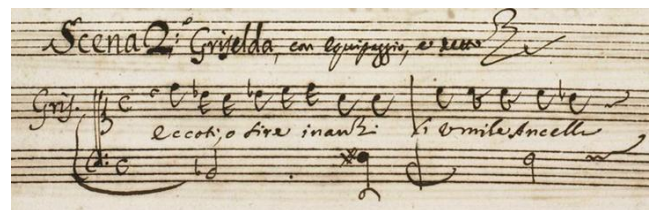 Scena 2.ª Griselda, con equipaggio, e
Gris.
Eccoti, o Sire inanzi l'umile Ancella